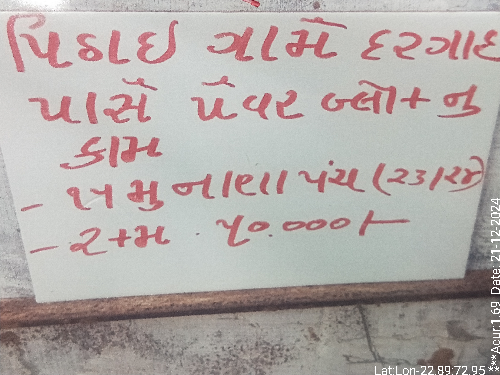 પિઠાઇ ગામે દરગાહ
પાસે પેવર બ્લોક નુ
કામ
- ૧૫મુ નાણાપંચ (૨૩/૨૪)
- ૨કમ . ૫૦.૦૦૦/-
Lat:Lon-22.89:72.95 ***Acur:1.69 Date: 21-12-2024